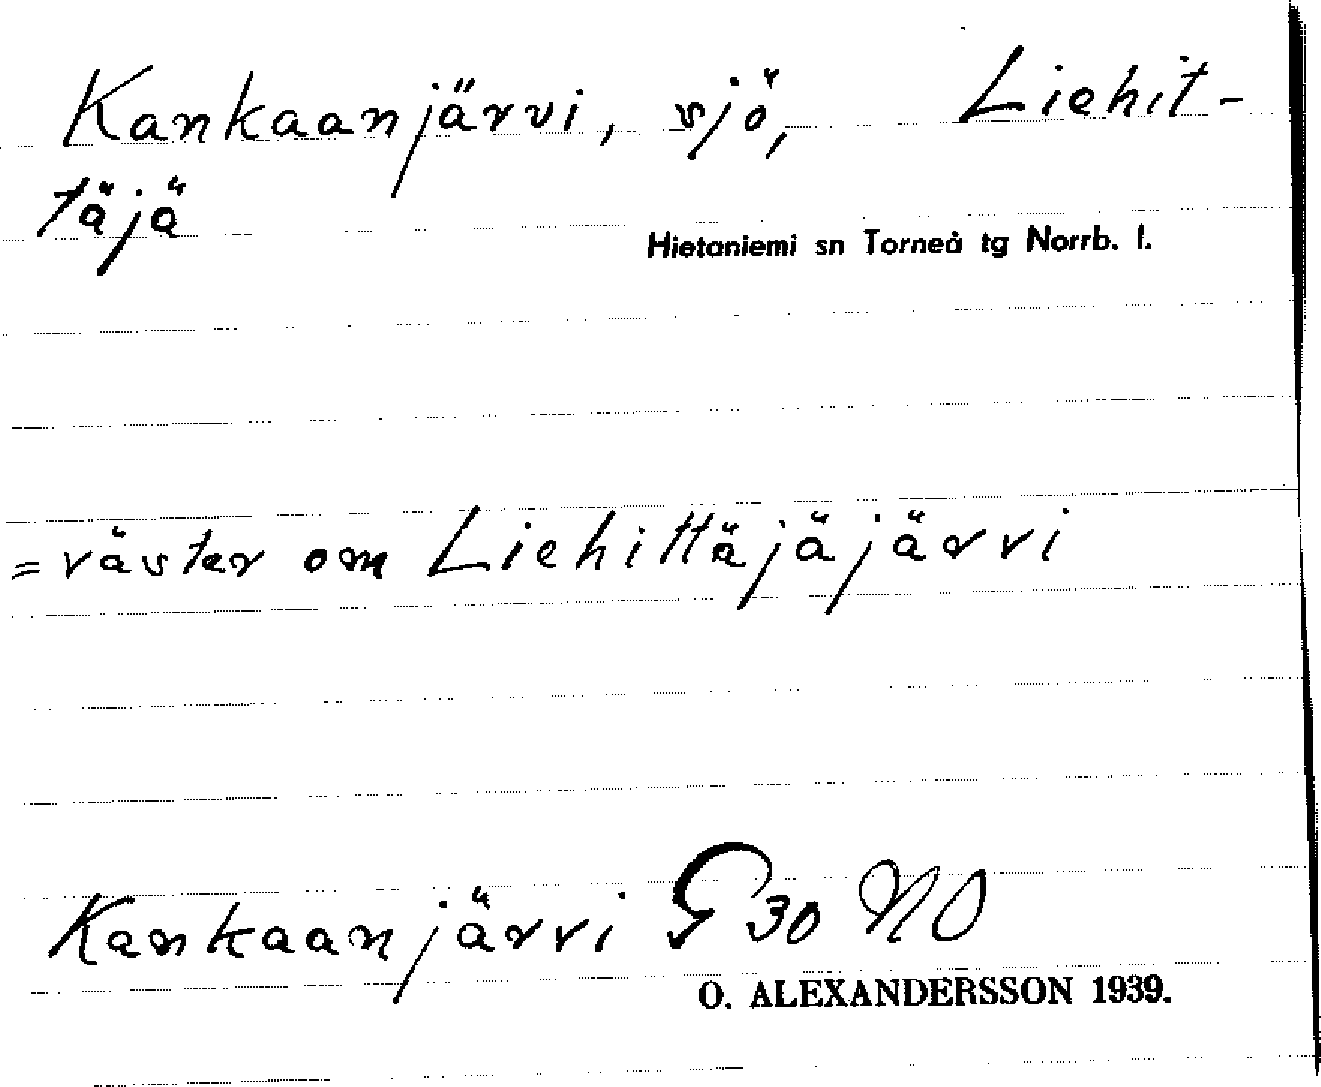 Kankaanjärvi, sjö, Liehit-
täjä
Hietaniemi sn Torneå tg Norrb. l.
= väster om Liehittäjäjärvi
Kankaanjärvi G 30 NO
O. ALEXANDERSSON 1939.